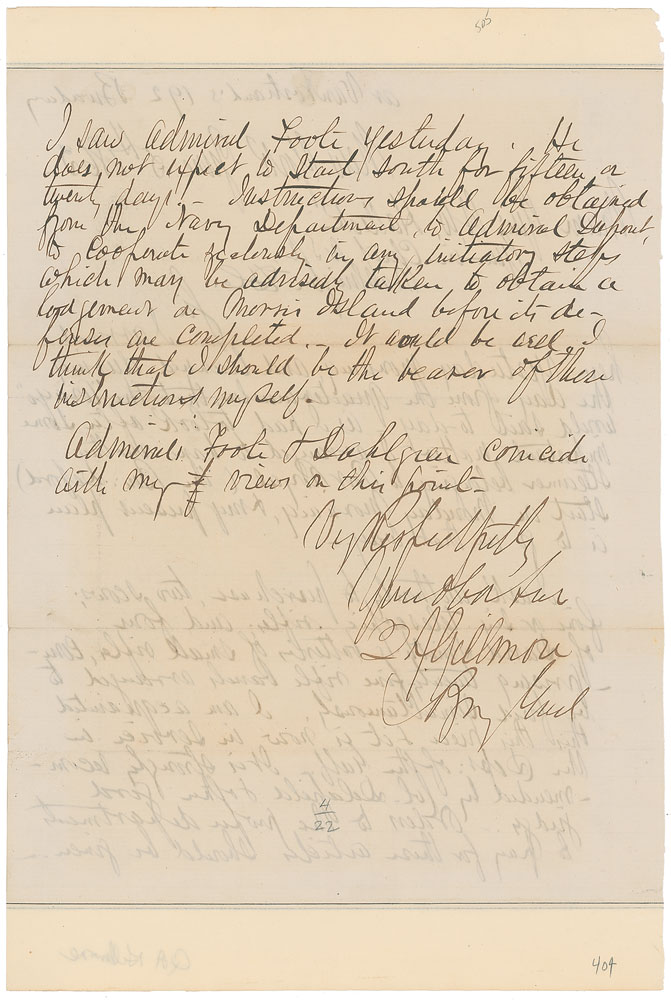 506
I saw Admiral Foote yesterday. He
does not expect to start south for fifteen or
twenty days. – Instructions should be obtained
from the Navy Department, to Admiral Dupont,
to cooperate zealously in any initiatory steps
which may be advisedly taken to obtain a
lodgement on Morris Island before its de-
fenses are completed. – It would be well I
think that I should be the bearer of these
instructions myself.
Admirals Foote & Dahlgren coincide
with my views on this point –
Very Respectfully
Your obt Ser
Q A Gillmore
Brig Genl
4
22
404